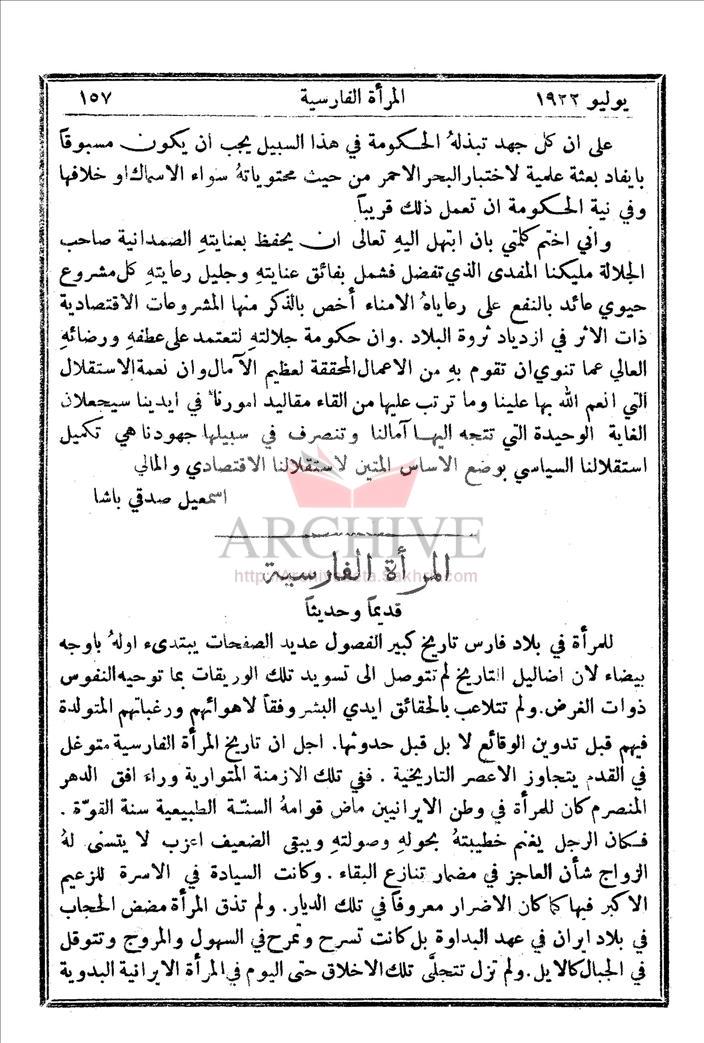 يوليو ١٩٢٢ المرأة الفارسية ١٥٧
على ان كل جهد تبذلهُ الحكومة في هذا السبيل يجب ان يكون مسبوقاً
بايفاد بعثة علمية لاختبار البحر الاحمر من حيث محتوياتهُ سواء الاسماك او خلافها
وفي نية الحكومة ان تعمل ذلك قريباً
واني اختم كلمتي بان ابتهل اليهِ تعالى ان يحفظ بعنايتهِ الصمدانية صاحب
الجلالة مليكنا المفدى الذي تفضل فشمل بفائق عنايتهِ وجليل رعايتهِ كل مشروع
حيوي عائد بالنفع على رعاياهُ الامناء أخص بالذكر منها المشروعات الاقتصادية
ذات الاثر في ازدياد ثروة البلاد . وان حكومة جلالتهِ لتعتمد على عطفهِ ورضائهِ
العالي عما تنوي ان تقوم بهِ من الاعمال المحققة لعظيم الآمال وان نعمة الاستقلال
التي انعم الله بها علينا وما ترتب عليها من القاء مقاليد امورنا في ايدينا سيجعلان
الغاية الوحيدة التي تتجه اليها آمالنا وتنصرف في سبيلها جهودنا هي تكميل
استقلالنا السياسي بوضع الاساس المتين لاستقلالنا الاقتصادي والمالي
اسمعيل صدقي باشا
ARCHIVE
المرأة الفارسية
قديماً وحديثاً
للمرأة في بلاد فارس تاريخ كبير الفصول عديد الصفحات يبتدىء اولهُ باوجه
بيضاء لان اضاليل التاريخ لم تتوصل الى تسويد تلك الوريقات بما توحيه النفوس
ذوات الغرض . ولم تتلاعب بالحقائق ايدي البشر وفقاً لاهوائهم ورغباتهم المتولدة
فيهم قبل تدوين الوقائع لا بل قبل حدوثها . اجل ان تاريخ المرأة الفارسية متوغل
في القدم يتجاوز الاعصر التاريخية . ففي تلك الازمنة المتوارية وراء افق الدهر
المنصرم كان للمرأة في وطن الايرانيين ماض قوامهُ السنة الطبيعية سنة القوّة .
فكان الرجل يغنم خطيبتهُ بحولهِ وصولتهِ ويبقى الضعيف اعزب لا يتسنى لهُ
الزواج شأن العاجز في مضمار تنازع البقاء . وكانت السيادة في الاسرة للزعيم
الاكبر فيها كما كان الاضرار معروفاً في تلك الديار . ولم تذق المرأة مضض الحجاب
في بلاد ايران في عهد البداوة بل كانت تسرح وتمرح في السهول والمروج وتتوقل
في الجبال كالايل . ولم تزل تتجلَّى تلك الاخلاق حتى اليوم في المرأة الايرانية البدوية